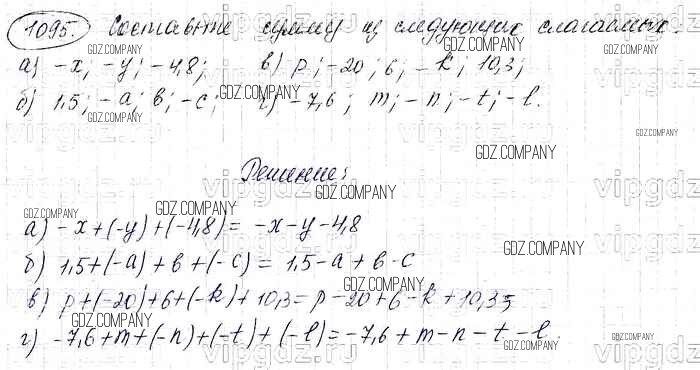 1095. Составьте сумму из следующих слагаемых.
а) -x; -y; -4,8; в) p; -20; 6; -k; 10,3;
б) 1,5; -a; в; -c; г) -7,6; m; -n; -t; -l.
Решение:
а) -x+(-y)+(-4,8)= -x-y-4,8
б) 1,5+(-a)+в+(-c)= 1,5-a+в-c
в) p+(-20)+6+(-k)+10,3=p-20+6-k+10,3;
г) -7,6+m+(-n)+(-t)+(-l)=-7,6+m-n-t-l.
GDZ.COMPANY
vipgdz.ru